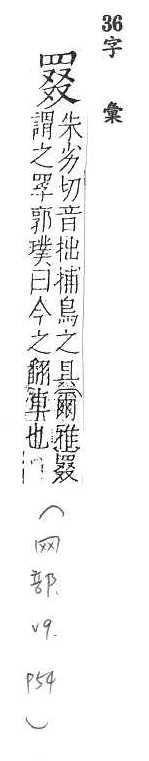 36字 彙
罬
朱劣切音拙捕鳥之具爾雅罬
謂之罦郭璞曰今之翻車也
(网部. v9. P54)